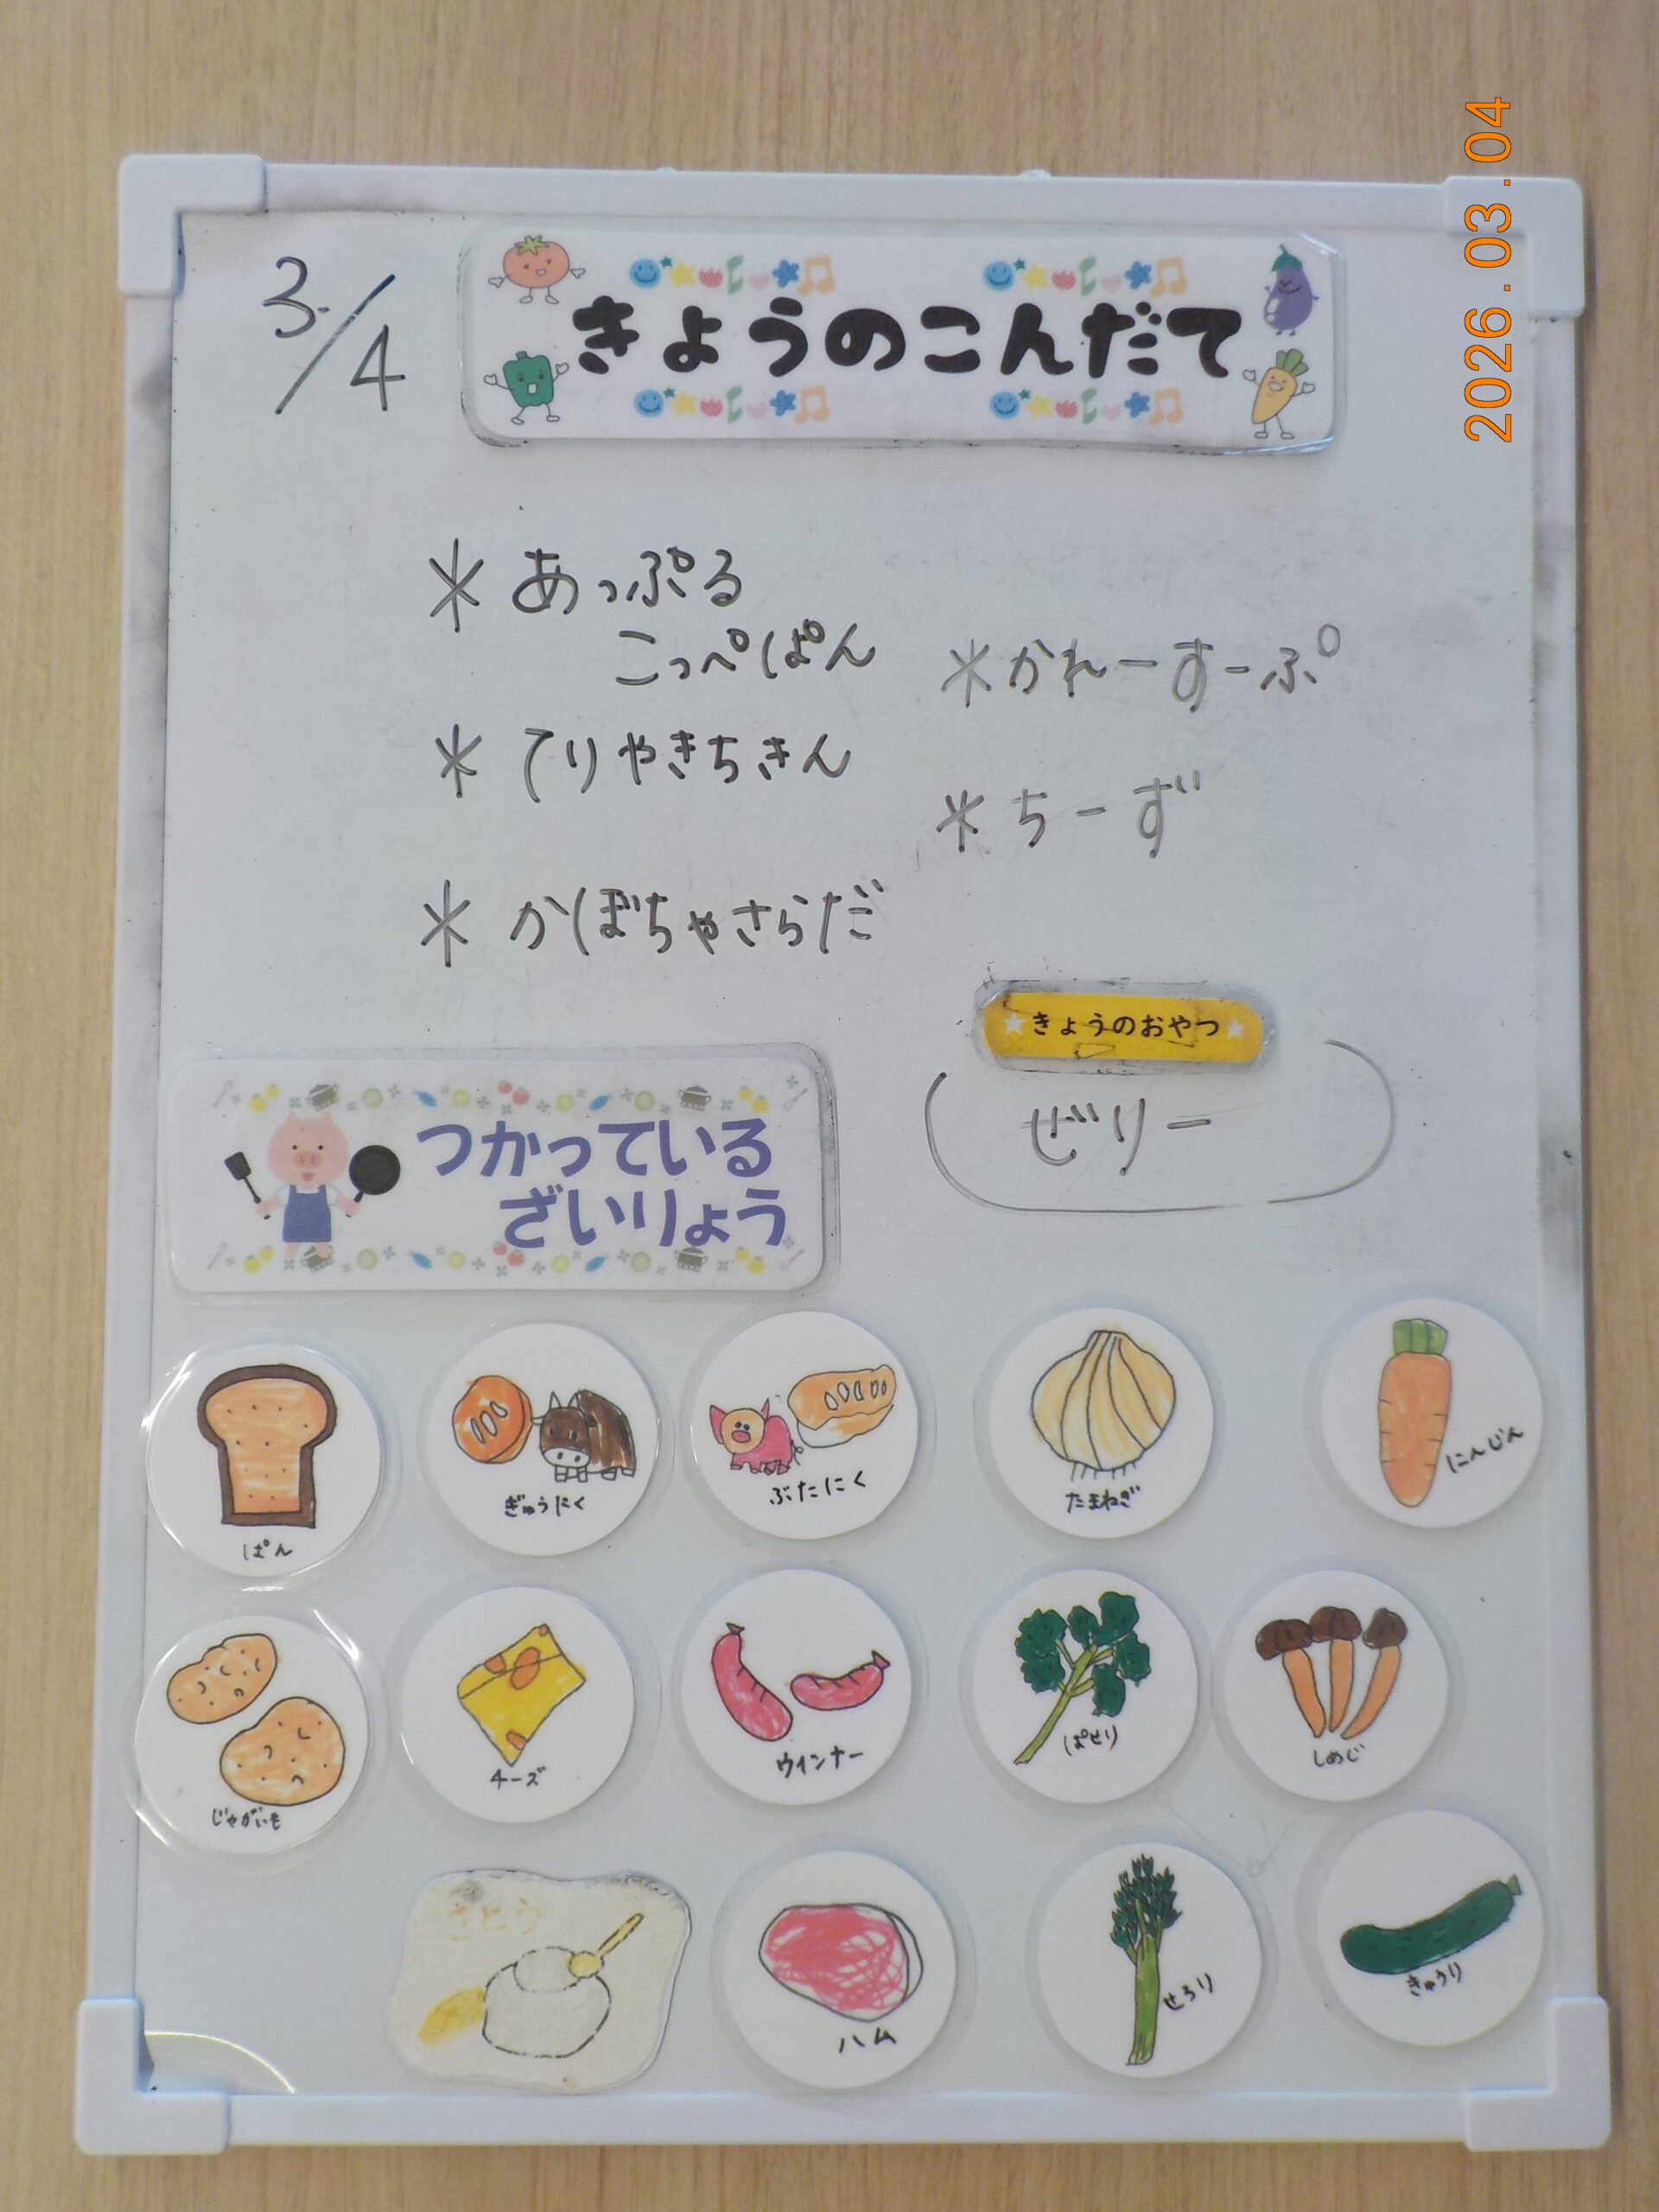 2026.03.04
3/4
きょうのこんだて
* あっぷる
こっぺぱん
* てりやきちきん
* かぼちゃさらだ
*かれーすーぷ
* ちーず
きょうのおやつ
ぜりー
つかっている
ざいりょう
ぱん
ぎゅうにく
ぶたにく
たまねぎ
にんじん
じゃがいも
チーズ
ウインナー
ぱせり
しめじ
さとう
ハム
せろり
きゅうり